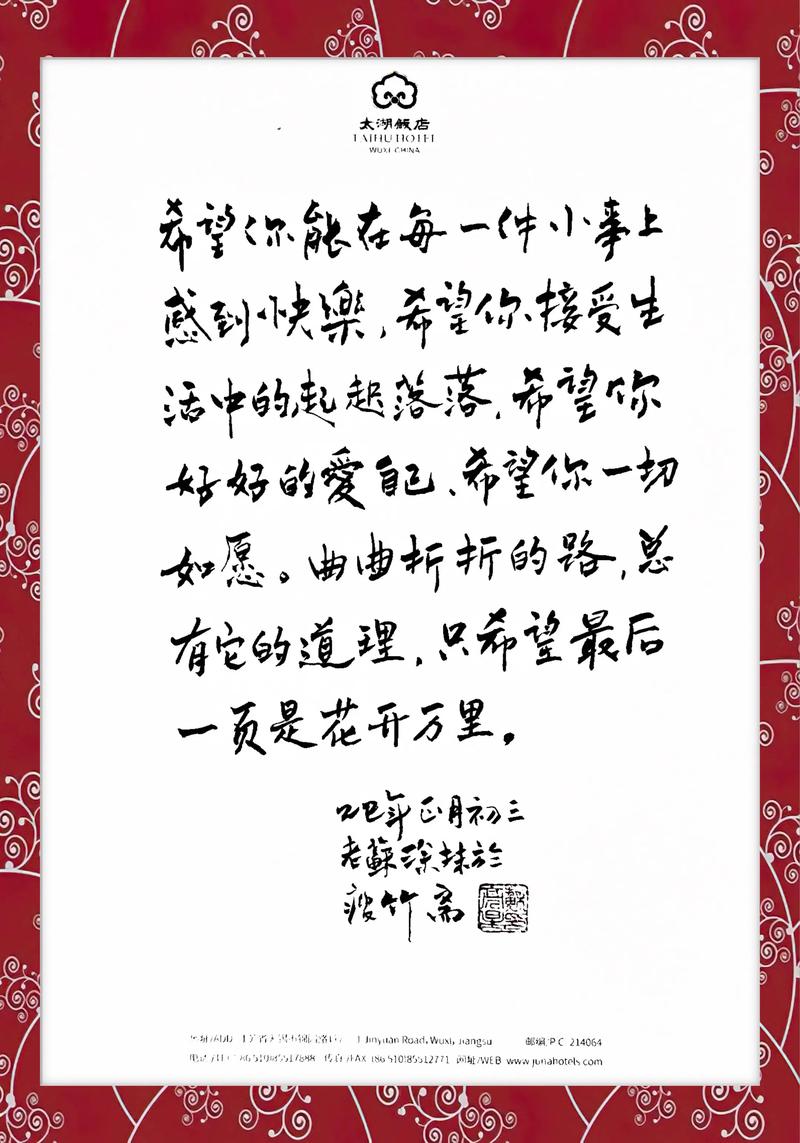 太湖飯店
TAIHU HOTEL
WUXI CHINA
希望你能在每一件小事上
感到快樂,希望你接受生
活中的起起落落,希望你
好好的愛自己、希望你一切
如愿。曲曲折折的路,总
有它的道理,只希望最后
一页是花开万里。
乙巳年正月初三
老蘇塗抹於
瘦竹斋
1 Jinyuan Road, Wuxi, Jiangsu 邮编/P.C. 214064
传真/FAX +86 510 85512771 网址/WEB www.junahotels.com